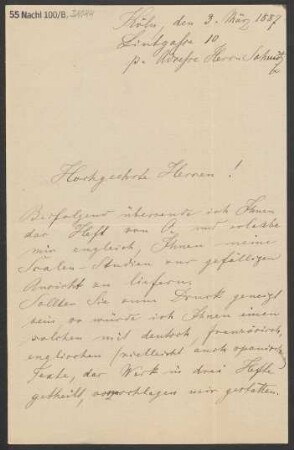 55 Nachl 100/B.
Köln, den 3. März 1887
Lintgasse 10
p. Adresse Herrn Schmitz
Hochgeehrte Herren!
Beifolgend übersende ich Ihnen
das Heft von und erlaube
mir zugleich, Ihnen meine
Scalen-Studien zur gefälligen
Ansicht zu liefern.
Sollten Sie einen Druck geneigt
sein, so würde ich Ihnen einen
solchen mit deutsch, französisch,
englischen (vielleicht auch spanisch)
Texte, das Werk in drei Hefte
getheilt, vorzuschlagen mir gestatten.